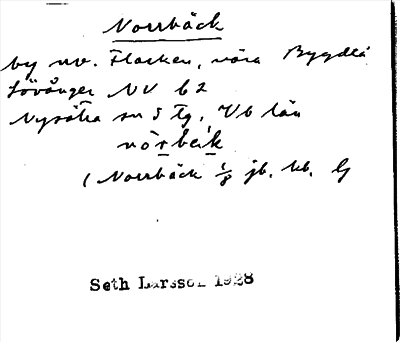 Norrbäck
by nv. Flarken, nära Bygdeå
Lövånger NV 62
Nysätra sn 5 Tg, Vb län
nò̱rbäk
( Norrbäck 1/8 jb. kb. G
Seth Larsson 1928